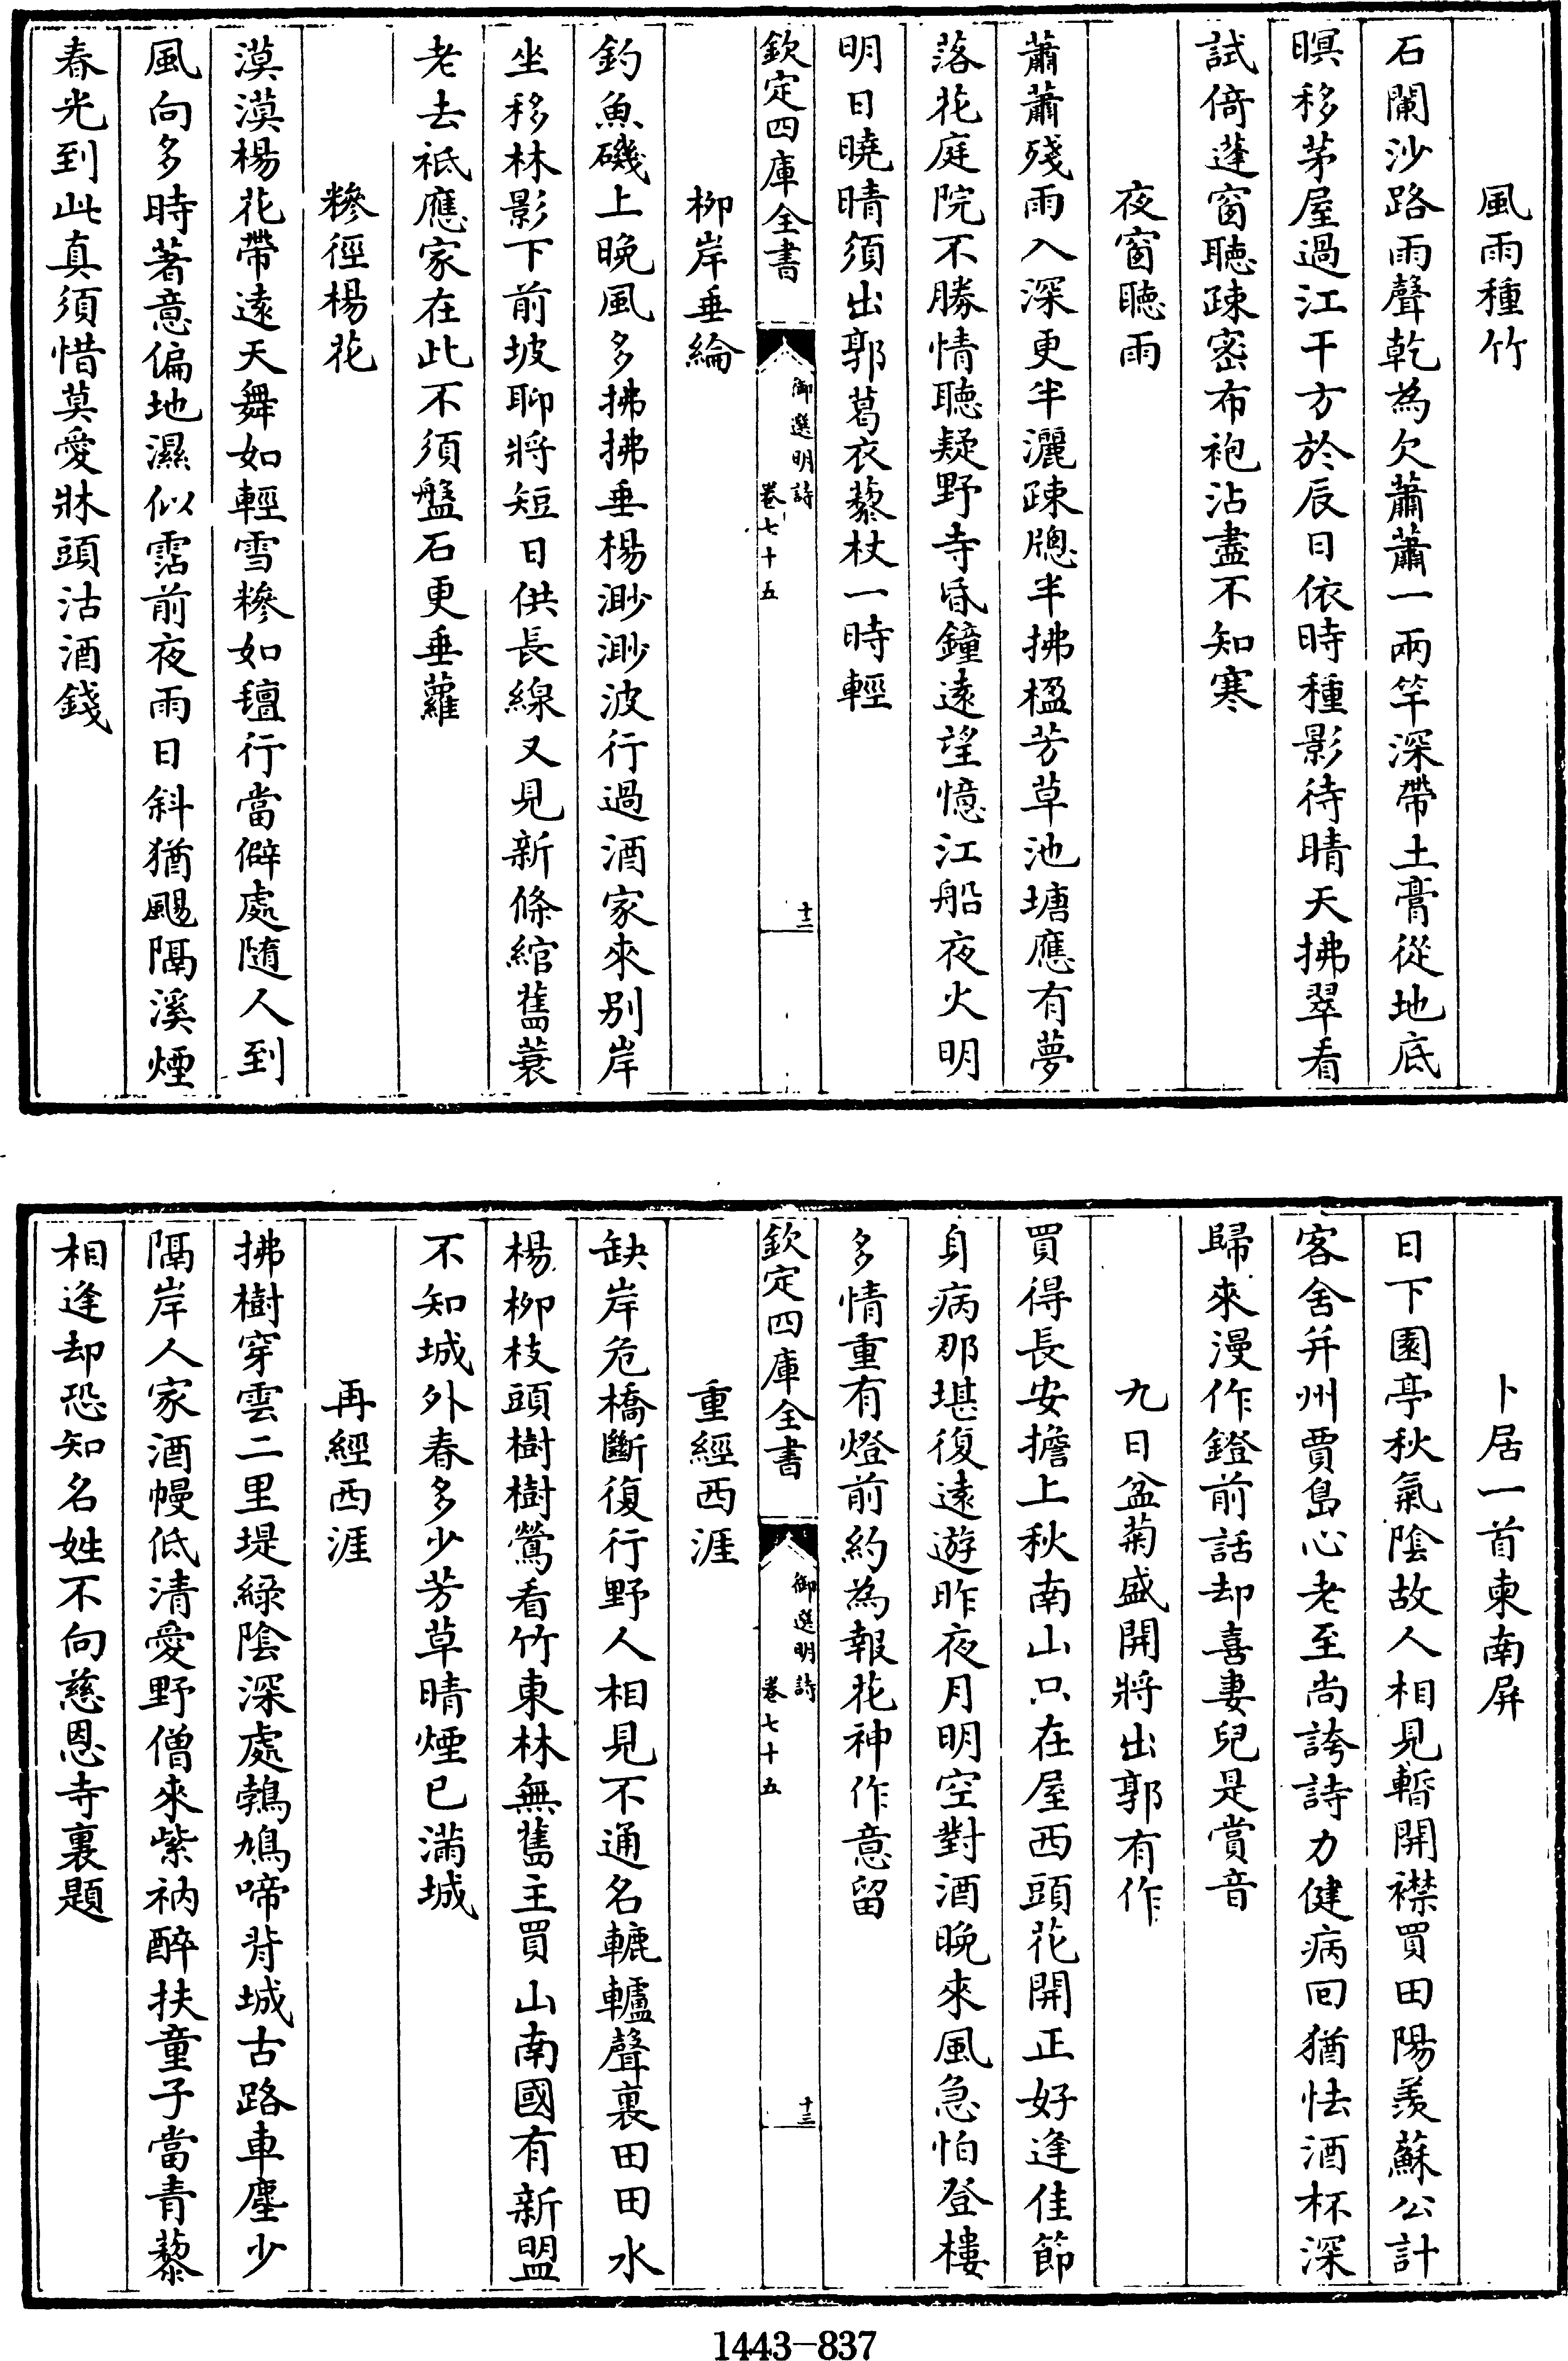 風雨種竹
石闌沙路雨聲乾為欠蕭蕭一兩竿深帶土膏從地底
暝移茅屋過江干方於辰日依時種影待晴天拂翠看
試倚蓬窗聽疎密布袍沾盡不知寒
夜窗聽雨
蕭蕭殘雨入深更半灑疎牕半拂楹芳草池塘應有夢
落花庭院不勝情聽疑野寺昏鐘遠望憶江船夜火明
明日曉晴須出郭葛衣藜杖一時輕
欽定四庫全書
御選明詩
卷七十五
十二
柳岸垂綸
釣魚磯上晚風多拂拂垂楊渺渺波行過酒家來別岸
坐移林影下前坡聊將短日供長線又見新條綰舊蓑
老去祗應家在此不須盤石更垂蘿
糝徑楊花
漠漠楊花帶遠天舞如輕雪糝如氊行當僻處隨人到
風向多時著意偏地濕似霑前夜雨日斜猶颺隔溪煙
春光到此真須惜莫愛牀頭沽酒錢
卜居一首柬南屏
日下園亭秋氣陰故人相見暫開襟買田陽羨蘇公計
客舍并州賈島心老至尚誇詩力健病回猶怯酒杯深
歸來漫作鐙前話却喜妻兒是賞音
九日盆菊盛開將出郭有作
買得長安擔上秋南山只在屋西頭花開正好逢佳節
身病那堪復遠遊昨夜月明空對酒晚來風急怕登樓
多情重有燈前約為報花神作意留
欽定四庫全書
御選明詩
卷七十五
十三
重經西涯
缺岸危橋斷復行野人相見不通名轆轤聲裏田田水
楊柳枝頭樹樹鶯看竹東林無舊主買山南國有新盟
不知城外春多少芳草晴煙已滿城
再經西涯
拂樹穿雲二里堤綠陰深處鵓鳩啼背城古路車塵少
隔岸人家酒幔低清愛野僧來紫衲醉扶童子當青藜
相逢却恐知名姓不向慈恩寺裏題
1443-837